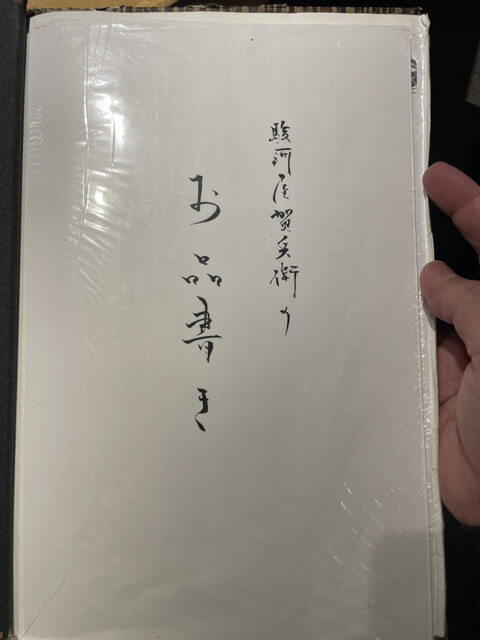 駿河屋賀兵衛の
お品書き